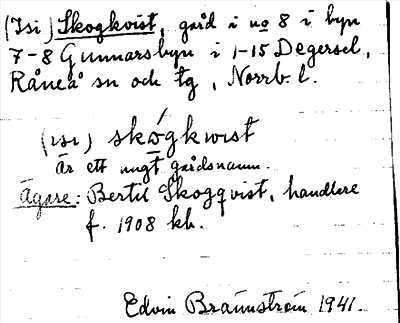 (Isi) Skogkvist, gård i no 8 i byn
7-8 Gunnarsbyn i 1-15 Degersel,
Råneå sn och tg, Norrb. l.
(isi) skógkwist
är ett ungt gårdsnamn.
Ägare: Bertil Skogqvist, handlare
f. 1908 kb.
Edvin Brännström 1941.